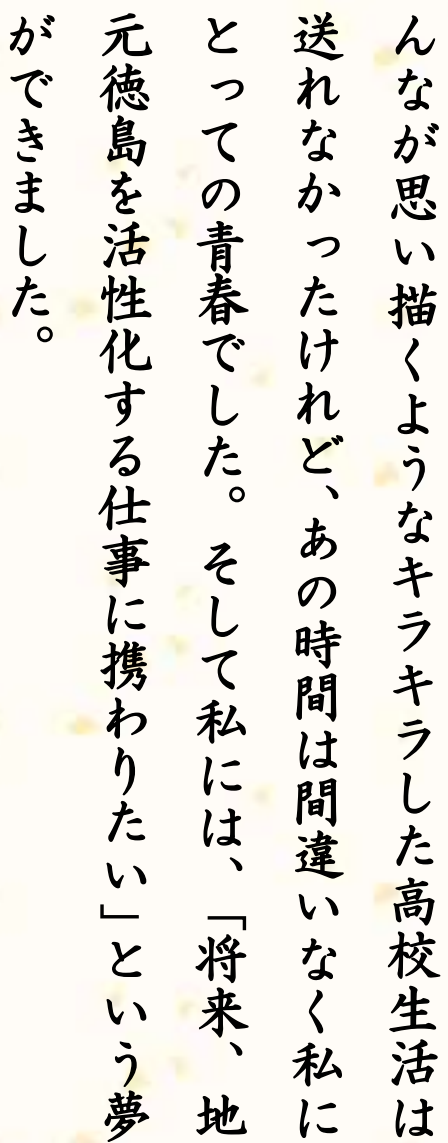 んなが思い描くようなキラキラした高校生活は
送れなかったけれど、あの時間は間違いなく私に
とっての青春でした。そして私には、「将来、地
元徳島を活性化する仕事に携わりたい」という夢
ができました。